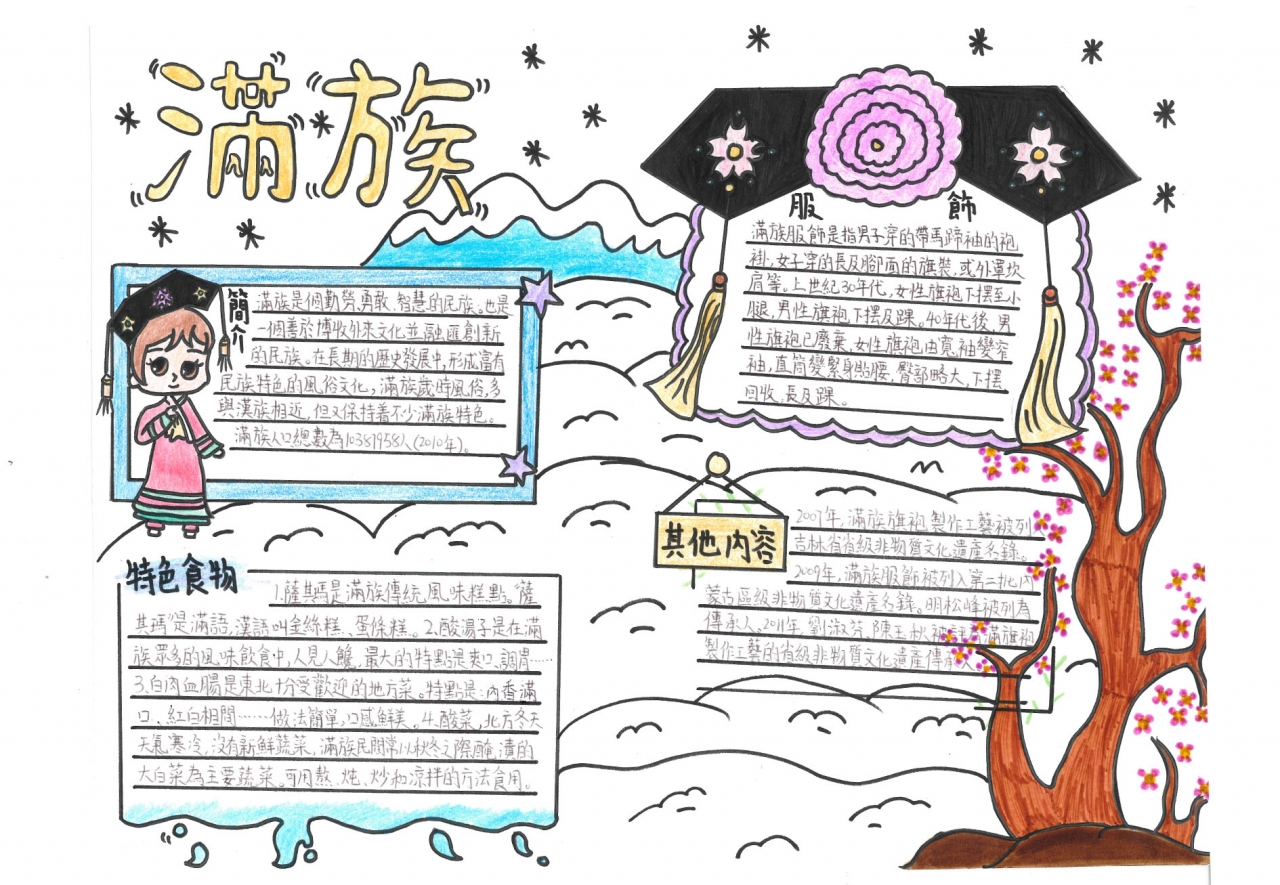 滿族
簡介
滿族是個勤勞、勇敢、智慧的民族。也是
一個善於博收外來文化並融匯創新
的民族。在長期的歷史發展中,形成富有
民族特色的風俗文化,滿族歲時風俗,多
與漢族相近,但又保持着不少滿族特色。
滿族人口總數為10381958人(2010年)。
服飾
滿族服飾是指男子穿的帶馬蹄袖的袍
褂,女子穿的長及腳面的旗裝,或外罩坎
肩等。上世紀30年代,女性旗袍下擺至小
腿,男性旗袍下擺及踝。40年代後,男
性旗袍已廢棄,女性旗袍由寬袖變窄
袖,直筒變緊身貼腰,臀部略大,下擺
回收,長及踝。
特色食物
1.薩其瑪是滿族傳統風味糕點。薩
其瑪是滿語,漢語叫金絲糕、蛋條糕。2.酸湯子是在滿
族眾多的風味飲食中,人見人饞,最大的特點是爽口、調胃……
3.白肉血腸是東北十分受歡迎的地方菜。特點是:肉香滿
口、紅白相間……做法簡單,口感鮮美。4.酸菜,北方冬天
天氣寒冷,沒有新鮮蔬菜,滿族民間常以秋冬之際醃漬的
大白菜為主要蔬菜。可用熬、炖、炒和涼拌的方法食用。
其他內容
2007年,滿族旗袍製作工藝被列
吉林省省級非物質文化遺產名錄。
2009年,滿族服飾被列入第二批內
蒙古區級非物質文化遺產名錄。明松峰被列為
傳承人。2011年,劉淑芬、陳玉秋被評為滿族旗袍
製作工藝的省級非物質文化遺產傳承人